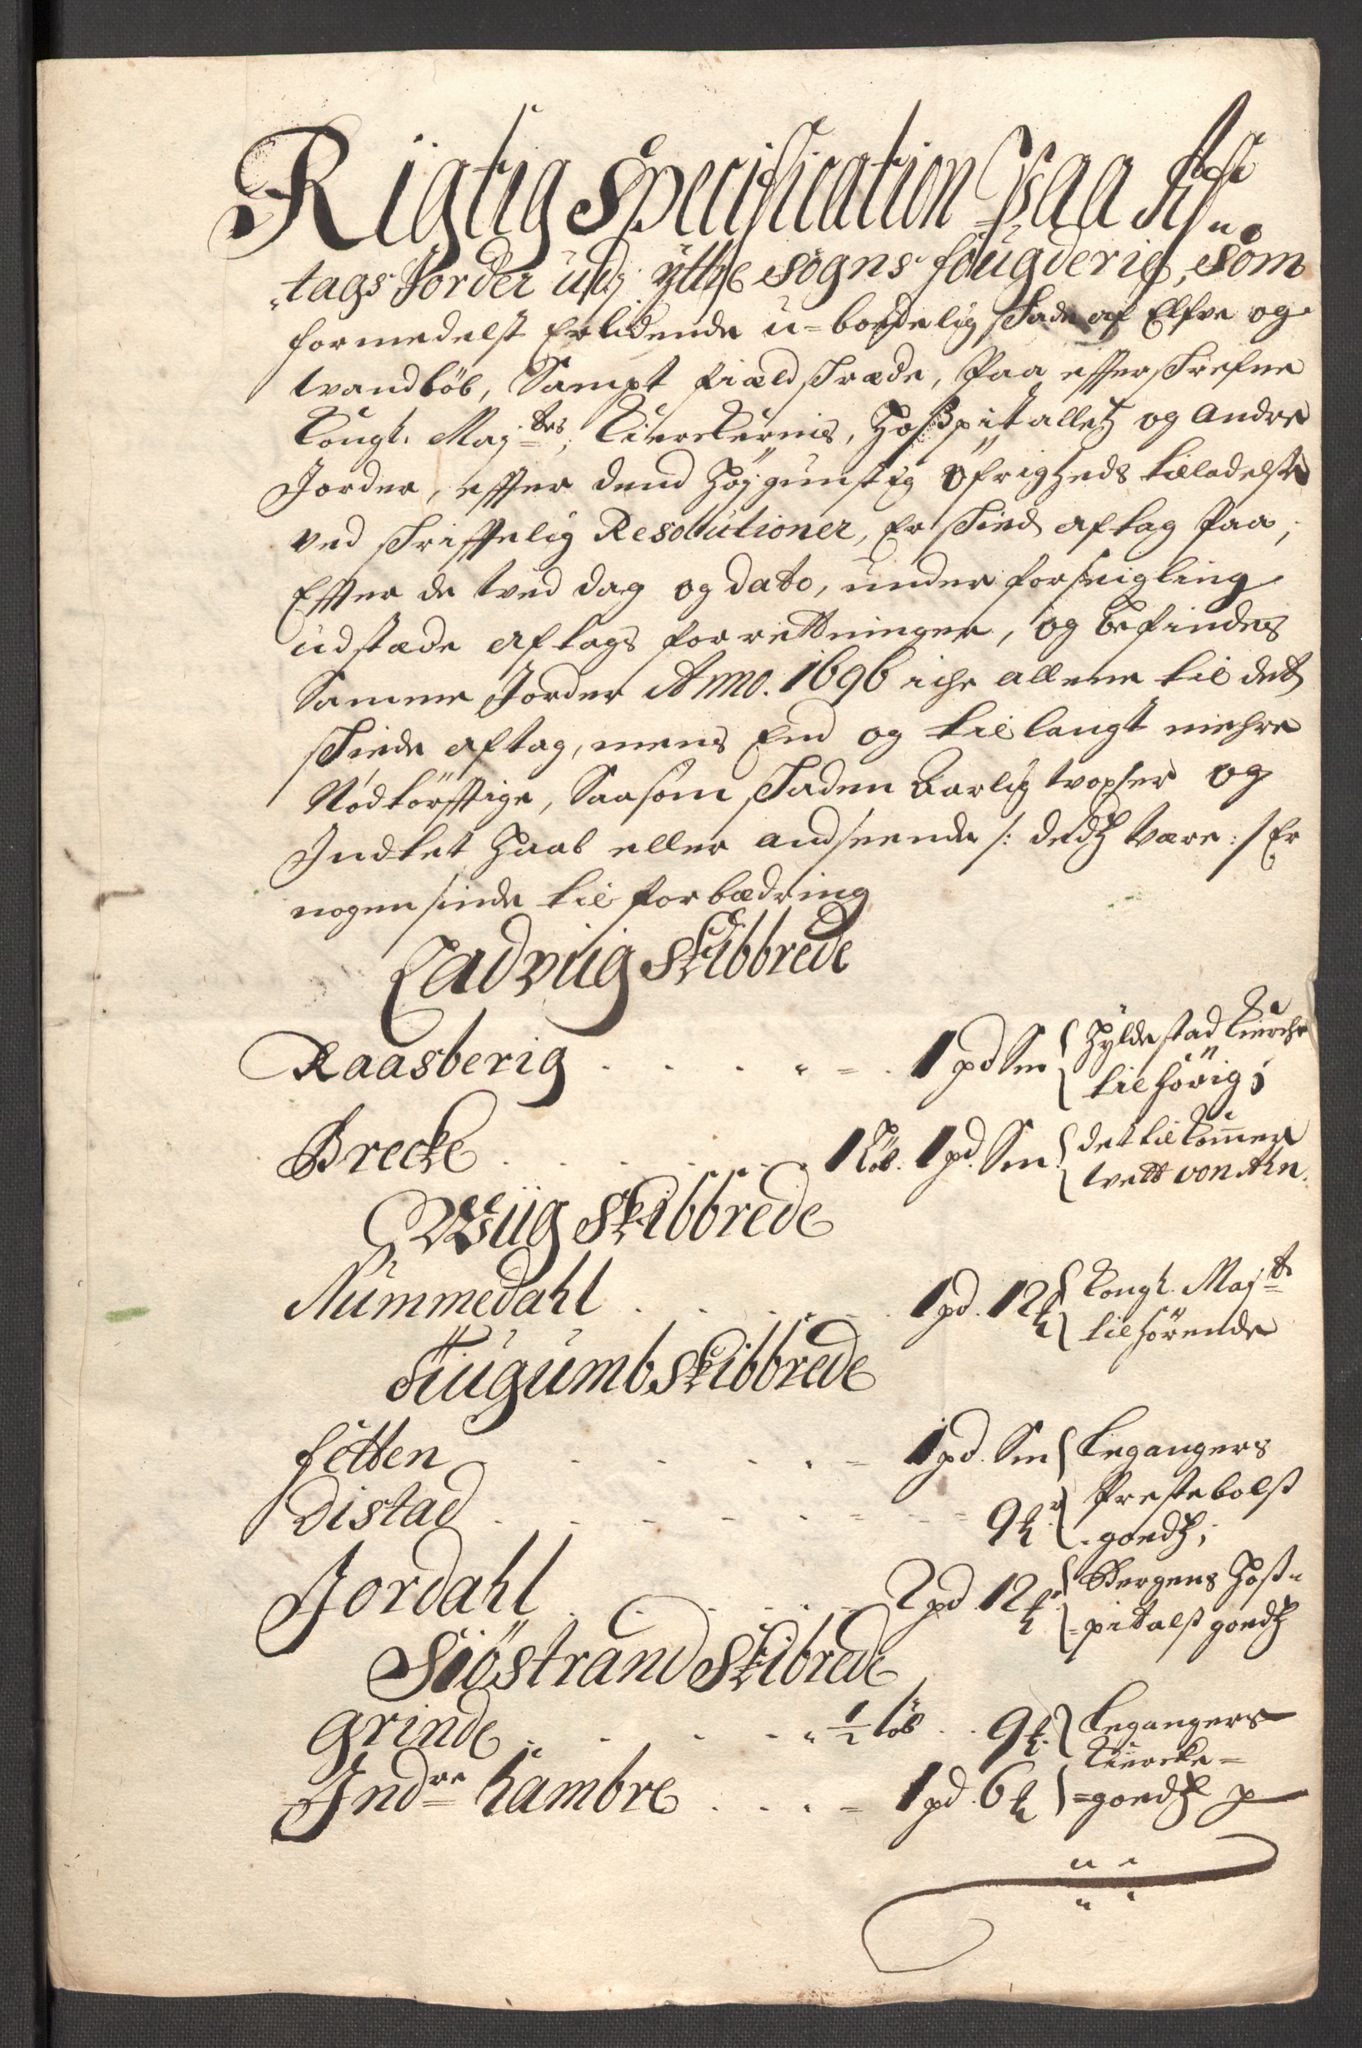 Rigtig Specification Paa Af„
„tags Jorder udj yttre Sogns fougderie, Som
formedelst Erlidende u-bodelig skade af Elfve og
vandløb, Sampt field skrede, Paa efterskrefne
Kongl. Maj:tes, Kierckernis, Hospitallets og Andre
Jorder, effter dend Høygunstig Øfrigheds tilladelse
ved skrifftelig Resolutioner, Er skied aftag Paa,
Effter de ved dag og dato, under forseigling
udstæde aftags forrettninger, og befindes
Samme Jorder Anno. 1696 iche allene til det
skiede aftag, mens End og til langt mehre
Nødtørfftige, Saasom skaden Aarlig voxser og
Indtet Haab eller andseende /: dedz være :/ Er
nogensinde til forbædring
Ladviig Skibbrede
Raasberig . . . . 1 pd Sm { Hyldestad Kierche
tilhørig;
Brecke . . . . 1 Løb. 1 pd. Sm. { det tilkommer
von Ahn.
Wiig Skibbrede
Nummedahl . . . . 1 pd. 12 { Kongl. Majtt
tilhørende
Fiugumb Skibbrede
føtten . . . . 1 pd. Sm { Legangers
Distad . . . . 9 { Prestebols
goedz;
Jordahl . . . . 2 pd 12 { Bergens Hos„
„pitals goedz
Siöstrand Skibrede
Grinde . . . . ½ Løb . . 9 } Legangers
Kiercke=
Indre Hambre . . . . 1 pd. 6 } =goedz p